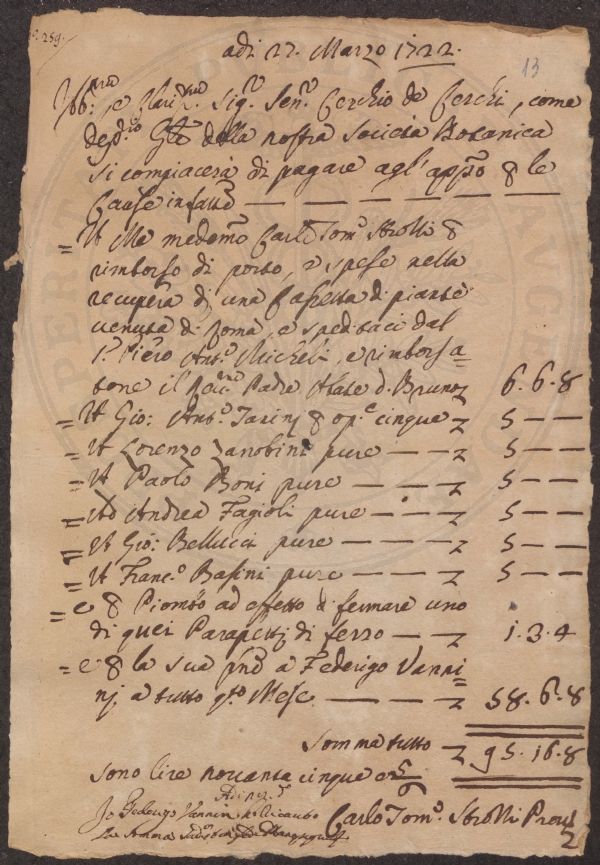 259.
adì 27. Marzo 1722.
13
e Clari.mo Sig.r Sen.re Cerchio de Cerchi, come
della nostra Società Botanica
si compiacerà di pagare agl'app.o p le
Cause infatte — — — — — —
= A Me medemo Carlo Tom.o Strozzi p
rimborso di porto, e spese nella
recupera di una Cassetta di piante
venuta di Roma, e speditaci dal
S.r Piero Ant.o Micheli, e rimborsa=
tone il Padre Abate d. Bruno z 6.6.8
= A Gio: Ant.o Tarinj p op.e cinque z 5 — —
= A Lorenzo Zanobini pure — — z 5 — —
= A Paolo Boni pure — — — z 5 — —
= Ad Andrea Fagioli pure — — z 5 — —
= A Gio: Bellucci pure — — — z 5 — —
= A Franc.o Basini pure — — — z 5 — —
= e p Piombo ad effetto di fermare uno
di quei Parapetti di ferro — — z 1.3.4
= e p la sua pñe a Federigo Vanni=
nj, a tutto q.to Mese — — — — z 58.6.8
Somma tutto — z 95.16.8
sono lire novanta cinque
Adi
Io Federigo Vannini ò Ricauto
La Somma
Carlo Tom.o Strozzi Prov.